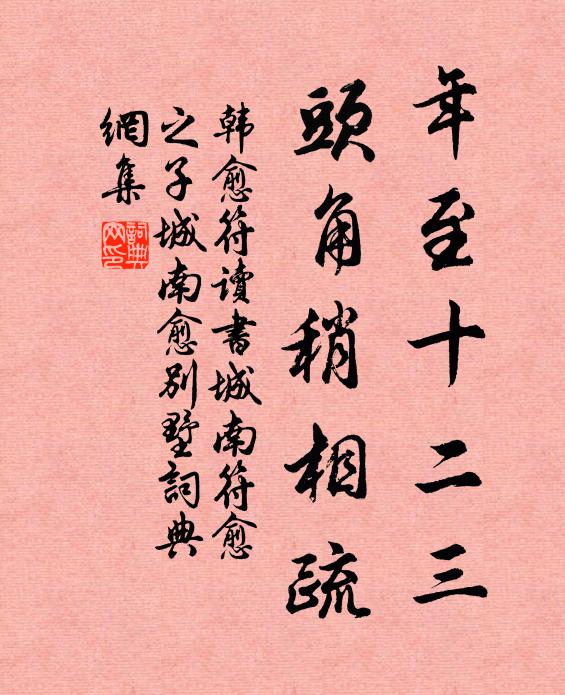 年至十二三
頭角稍相疏
韩愈符读書城南符愈
之子城南愈别墅詞典
網集
詞典
网印